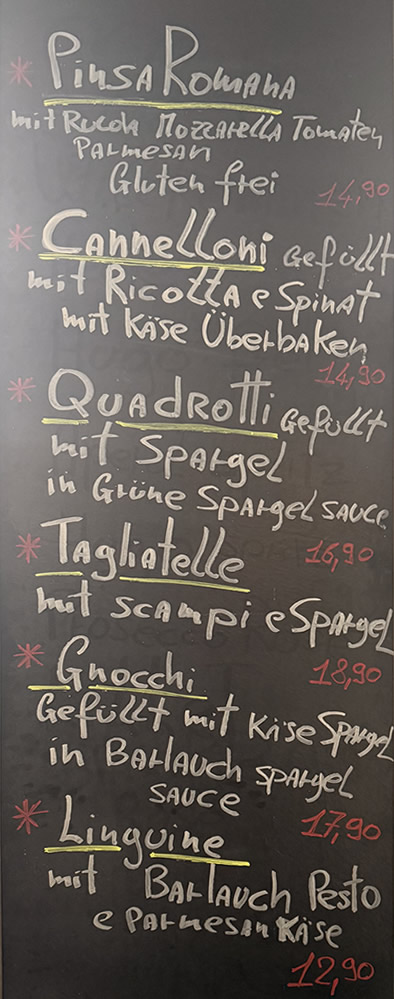 * Pinsa Romana
mit Rucola Mozzarella Tomaten
Parmesan
Gluten frei 14,90
* Cannelloni Gefüllt
mit Ricotta e Spinat
mit Käse Überbaken
14,90
* Quadrotti Gefüllt
mit Spargel
in Grüne Spargel sauce
* Tagliatelle 16,90
mit scampi e Spargel
* Gnocchi 18,90
Gefüllt mit Käse Spargel
in Barlauch spargel
sauce
* Linguine 17,90
mit Barlauch Pesto
e Parmesan Käse
12,90